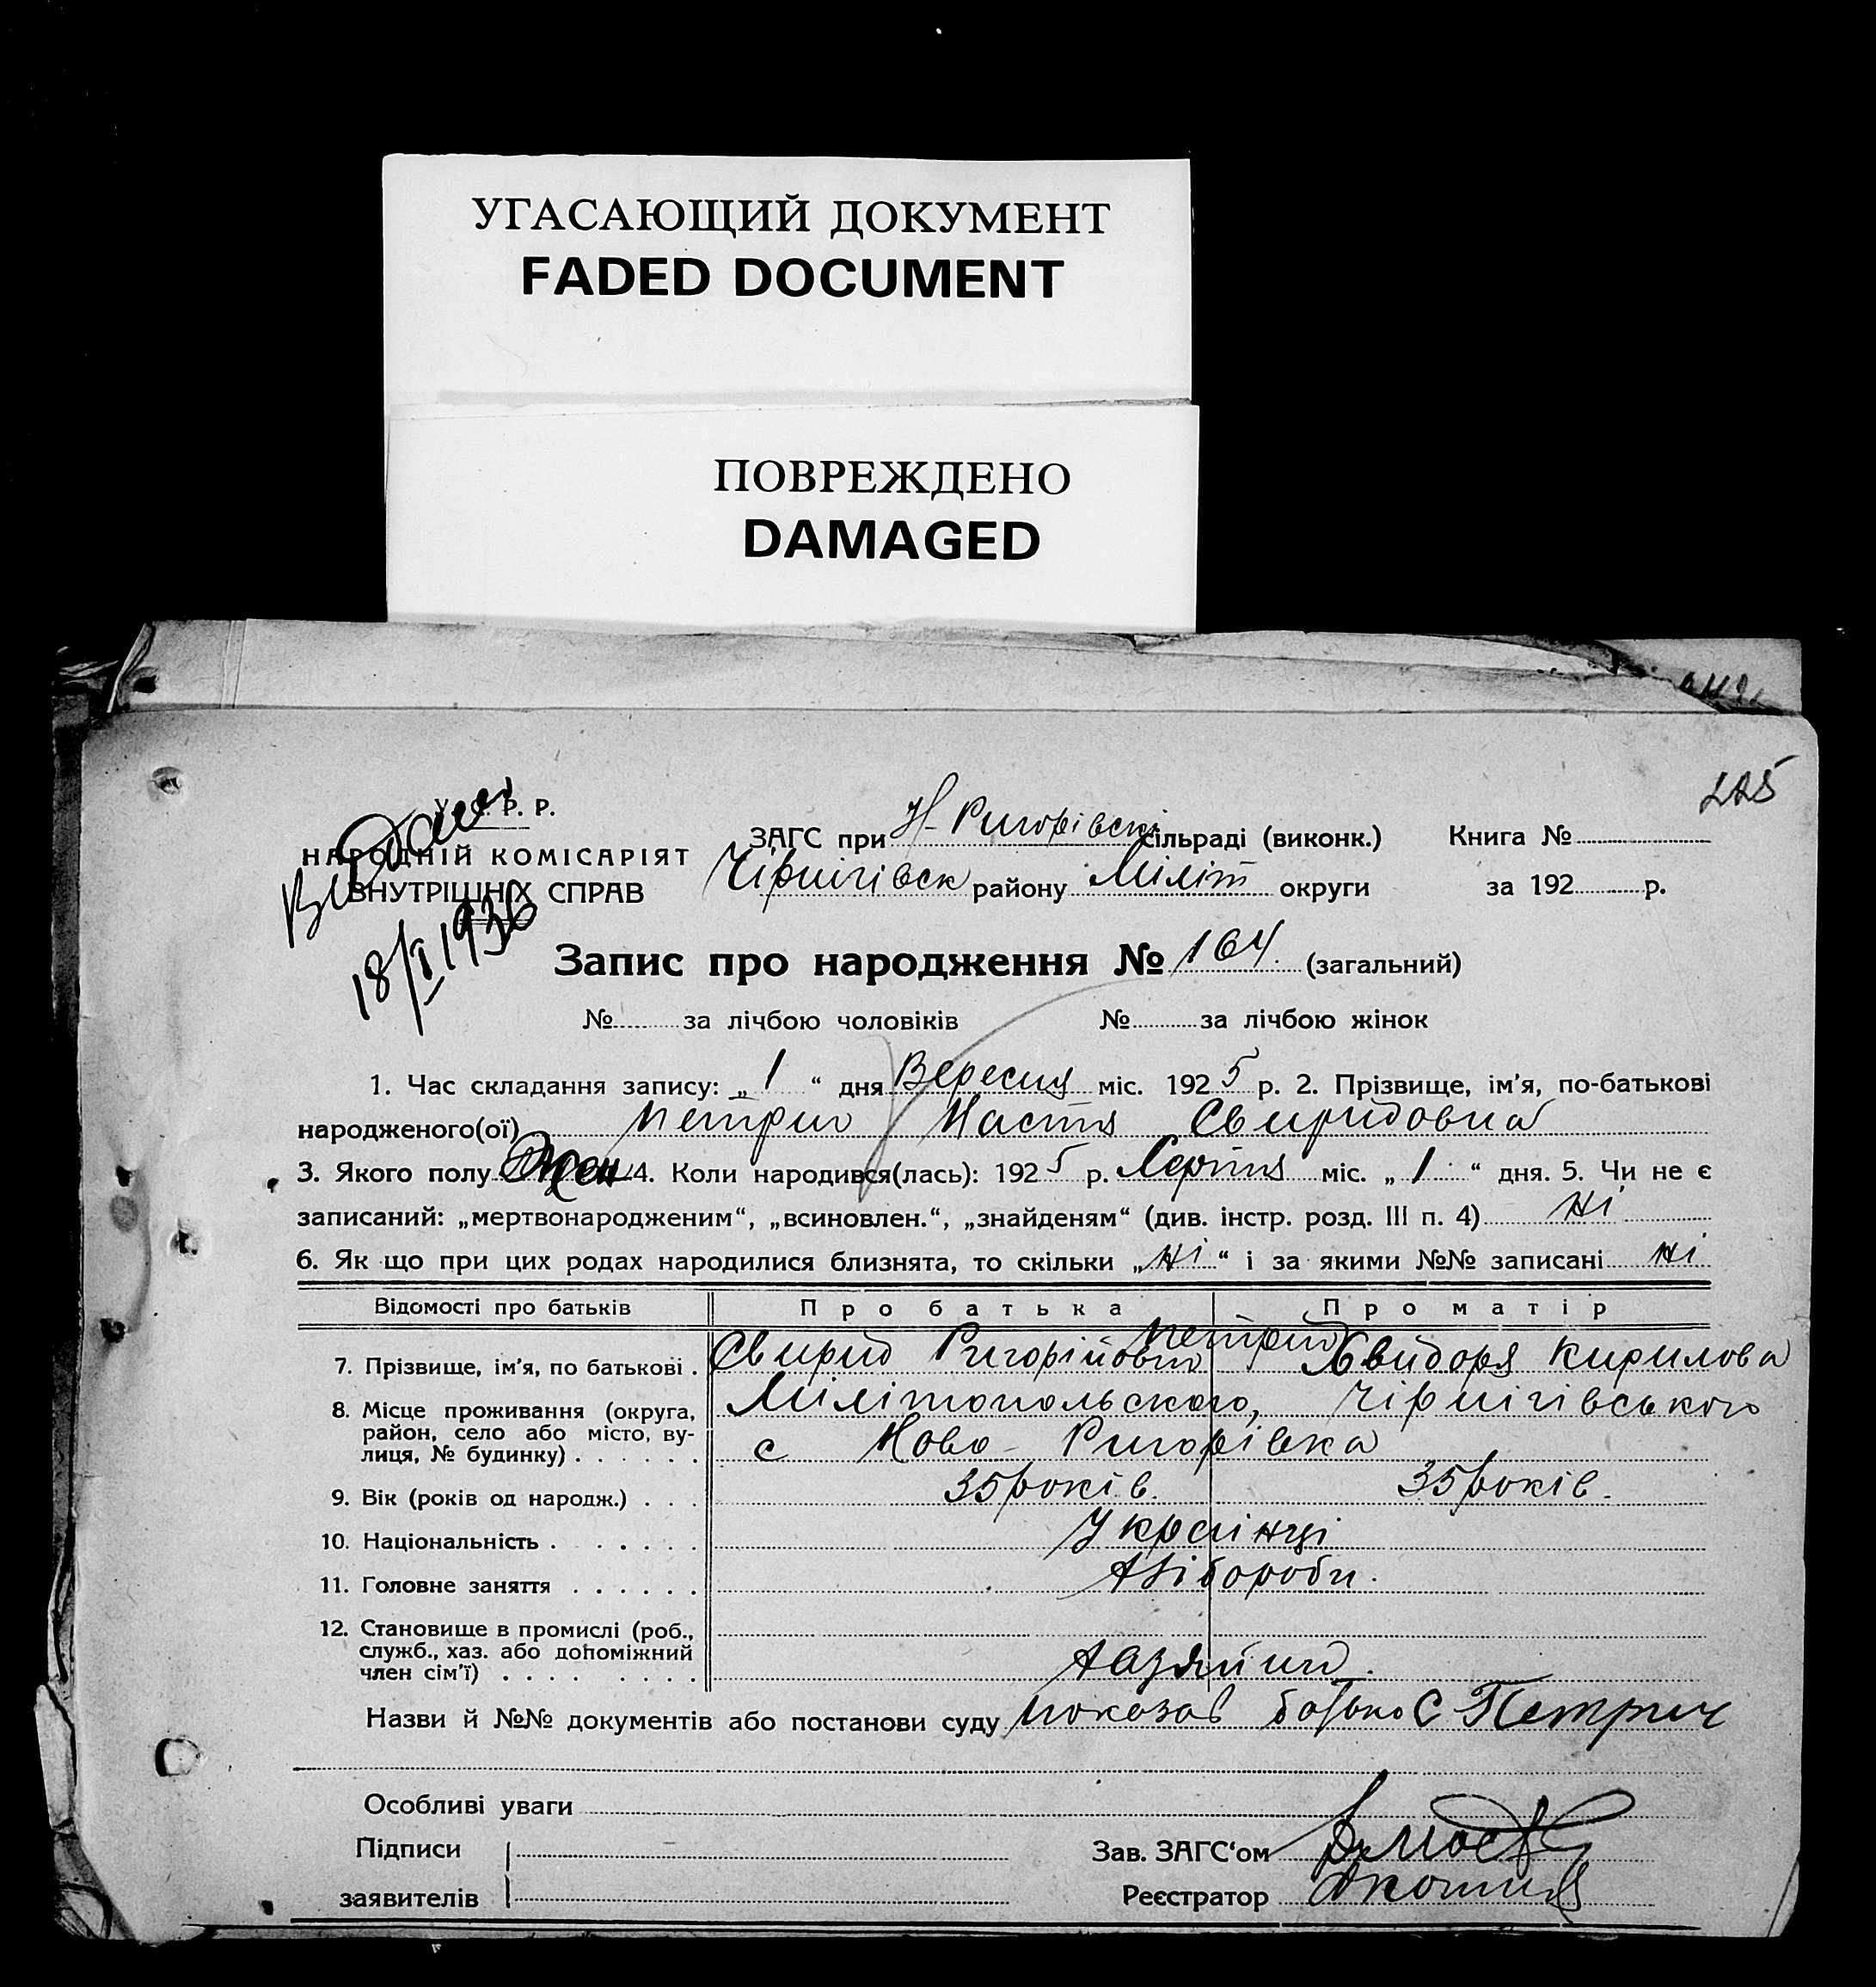 УГАСАЮЩИЙ ДОКУМЕНТ
FADED DOCUMENT
ПОВРЕЖДЕНО
DAMAGED
225
У. С. Р. Р.
НАРОДНІЙ КОМІСАРІЯТ
ВНУТРІШНІХ СПРАВ
Видан
18/I 1936
ЗАГС при Н-Ригорівскі сільраді (виконк.) Книга №
Чірнігівск району Міліт округи за 192 р.
Запис про народження № 164. (загальний)
№ за лічбою чоловіків № за лічбою жінок
1. Час складання запису: „ 1 “ дня Вересня міс. 1925 р. 2. Прізвище, ім'я, по-батькові
народженого(ої) Петрич Настя Свиридовна
3. Якого полу жен 4. Коли народився(лась): 1925 р. Серпня міс. „ 1 “ дня. 5. Чи не є
записаний: „мертвонародженим“, „всиновлен.“, „знайденям“ (див. інстр. розд. III п. 4) ні
6. Як що при цих родах народилися близнята, то скільки „ ні “ і за якими №№ записані ні
Відомості про батьків Про батька Про матір
7. Прізвище, ім'я, по батькові . Свирид Ригорійович Петрич Кирилова
8. Місце проживання (округа, Мілітопольского, Чірнігівського
район, село або місто, ву- с Ново-Ригорівка
лиця, № будинку) . . . . . .
9. Вік (років од народж.) . . . 35 років. 35 років.
10. Національність . . . . . . Українці
11. Головне заняття . . . . . . Хлібороби.
12. Становище в промислі (роб.,
служб., хаз. або допоміжний
член сім'ї) . . . . . . . . Хазяїни.
Назви й №№ документів або постанови суду показав батько С Петрич
Особливі уваги
Підписи
заявителів
Зав. ЗАГС'ом
Реєстратор